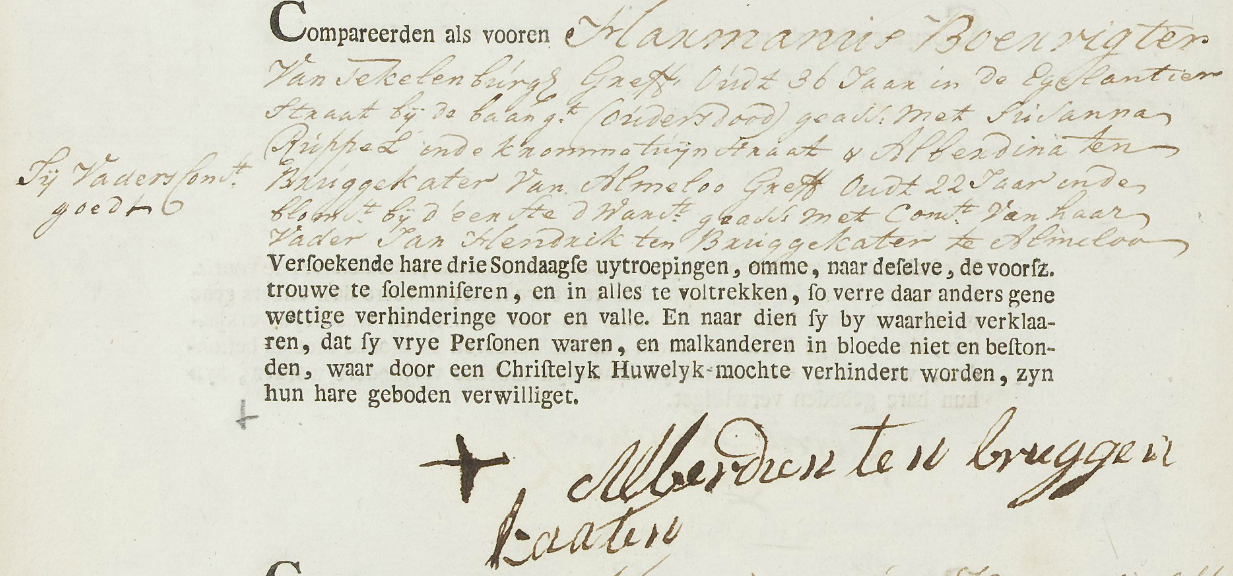 Compareerden als vooren Harmanius Boenrigter
Van Tekelenburg Greff Oudt 36 Jaar in de Egelantier
straat bij de baang.t (Ouders dood) geass. met Susanna
Ruppel inde krommetuijn straat & Alberdina ten
Bruggekater Van Almeloo Greff Oudt 22 Jaar inde
blom.t bij d'eenste d Wars.tt geass met Const Van haar
Vader Jan Hendrik ten Bruggekater te Almeloo
Sij Vaders Const.
goedt
Verſoekende hare drie Sondaagſe uytroepingen, omme, naar deſelve, de voorſz.
trouwe te ſolemniſeren, en in alles te voltrekken, ſo verre daar anders gene
wettige verhinderinge voor en valle. En naar dien ſy by waarheid verklaa-
ren, dat ſy vrye Perſonen waren, en malkanderen in bloede niet en beſton-
den, waar door een Chriſtelyk Huwelyk mochte verhindert worden, zyn
hun hare geboden verwilliget.
Alberdien ten bruggen
kaaten